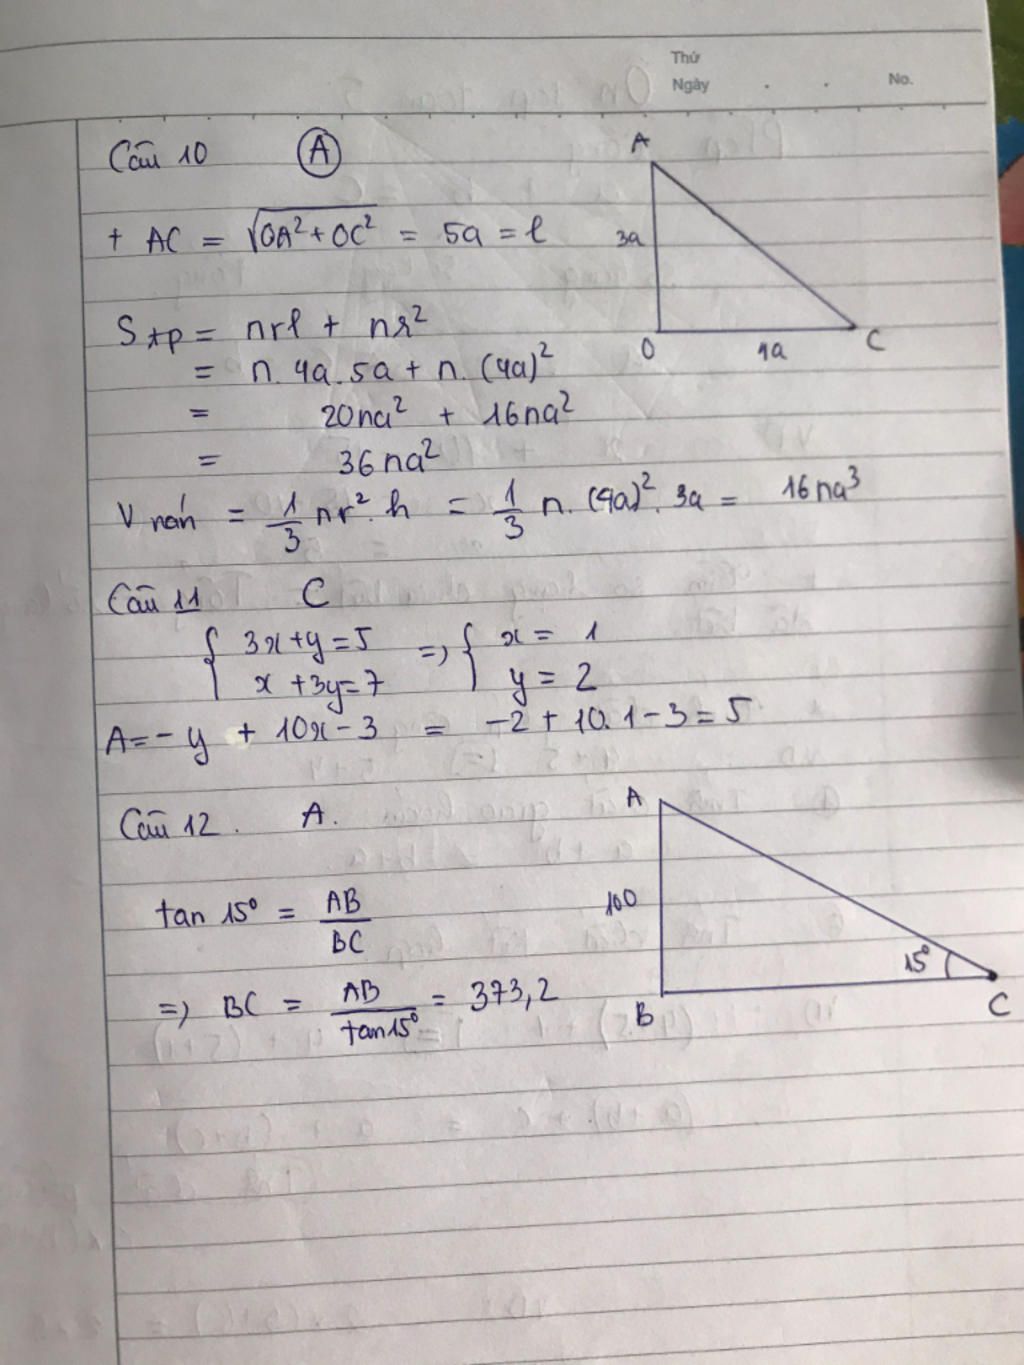 Thứ
Ngày . . No.
Câu 10 A
+ AC = √(OA² + OC²) = 5a = l
A
3a
O 4a C
Stp = πrl + πr²
= π.4a.5a + π.(4a)²
= 20πa² + 16πa²
= 36πa²
V nón = 1/3 πr².h = 1/3 π.(4a)².3a = 16πa³
Câu 11 C
{ 3x+y=5 => { x = 1
x+3y=7 y = 2
A = -y + 10x - 3 = -2 + 10.1 - 3 = 5
Câu 12. A.
A
100
15°
B C
tan 15° = AB/BC
=> BC = AB/tan15° = 373,2